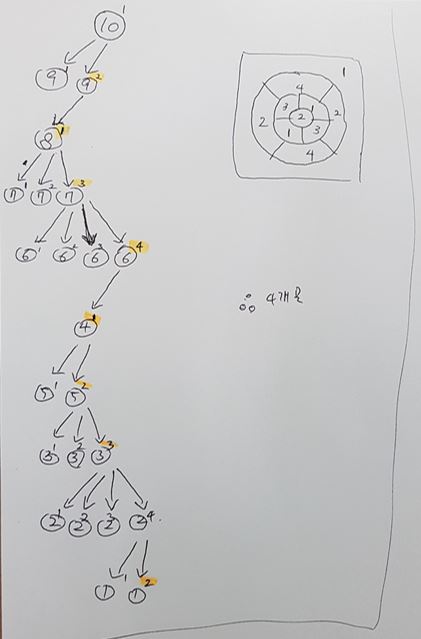 ⑩¹
⑨¹ ⑨²
⑧¹
⑦¹ ⑦² ⑦³
⑥¹ ⑥² ⑥³ ⑥⁴
④¹
⑤¹ ⑤²
③¹ ③² ③³
②¹ ②² ②³ ②⁴
①¹ ①²
1
4
3 1
2 2 2
1 3
4
∴ 4개